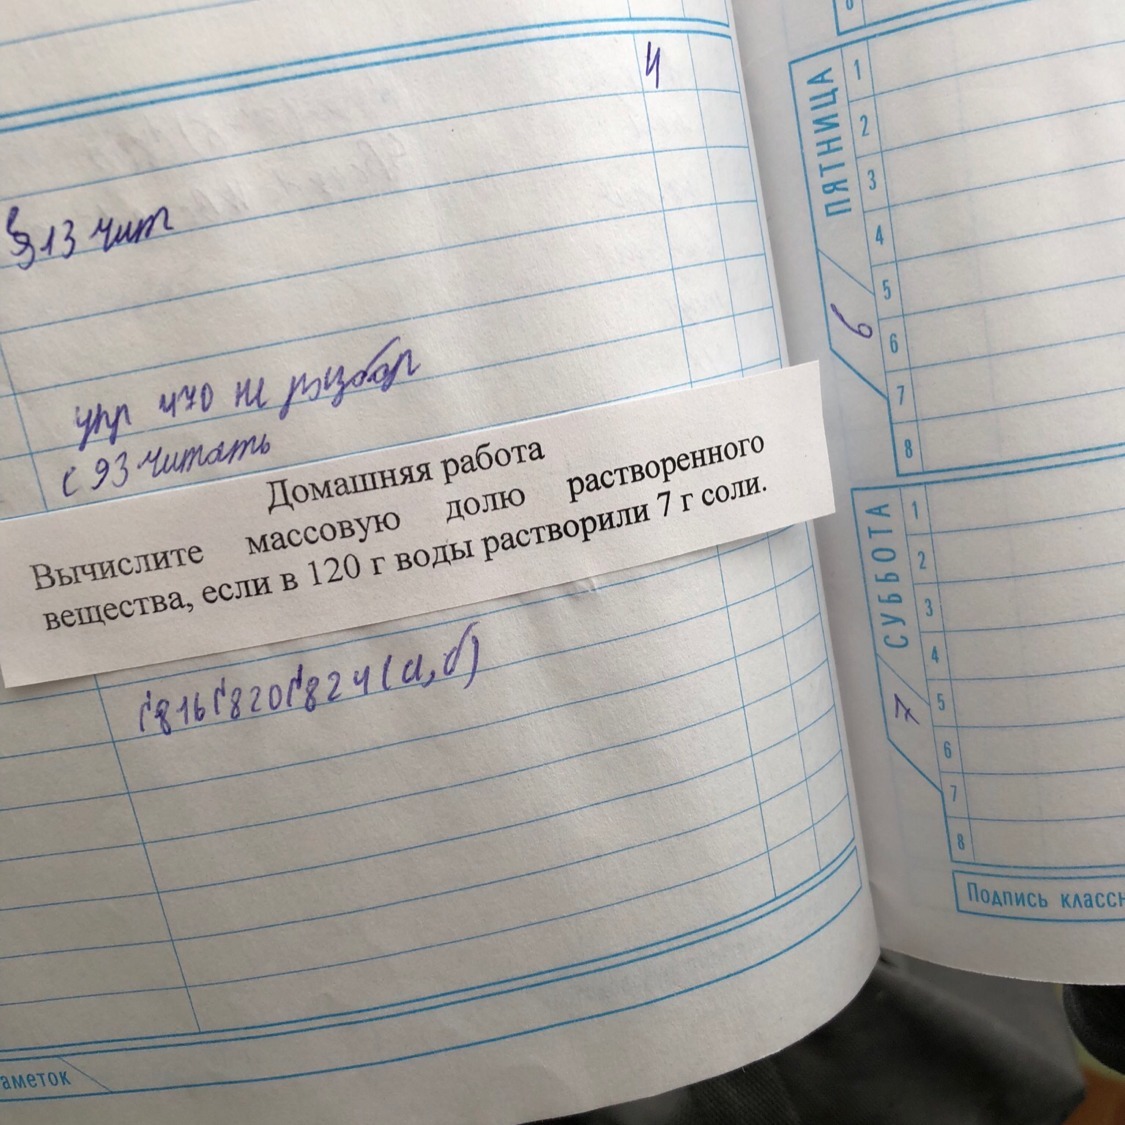 4
§13 чит
упр 470 не разбор
с 93 читать
Домашняя работа
Вычислите массовую долю растворенного
вещества, если в 120 г воды растворили 7 г соли.
816 820 824 (а, б)
аметок
ПЯТНИЦА
6
1
2
3
4
5
6
7
8
СУББОТА
7
1
2
3
4
5
6
7
8
Подпись классн